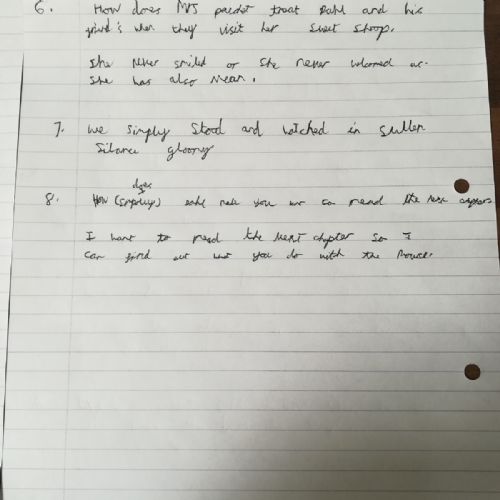 6. How does Mrs pratchet treat Dahl and his
friend's when they visit her Sweet Shop.
She Never smiled or she never welcomed us.
She has also Mean.
7. We simply Stood and watched in sullen
Silance gloomy
does
8. How (simply) make you to read the next
I want to read the next chapter so I
can find out what you do with the Mouse.